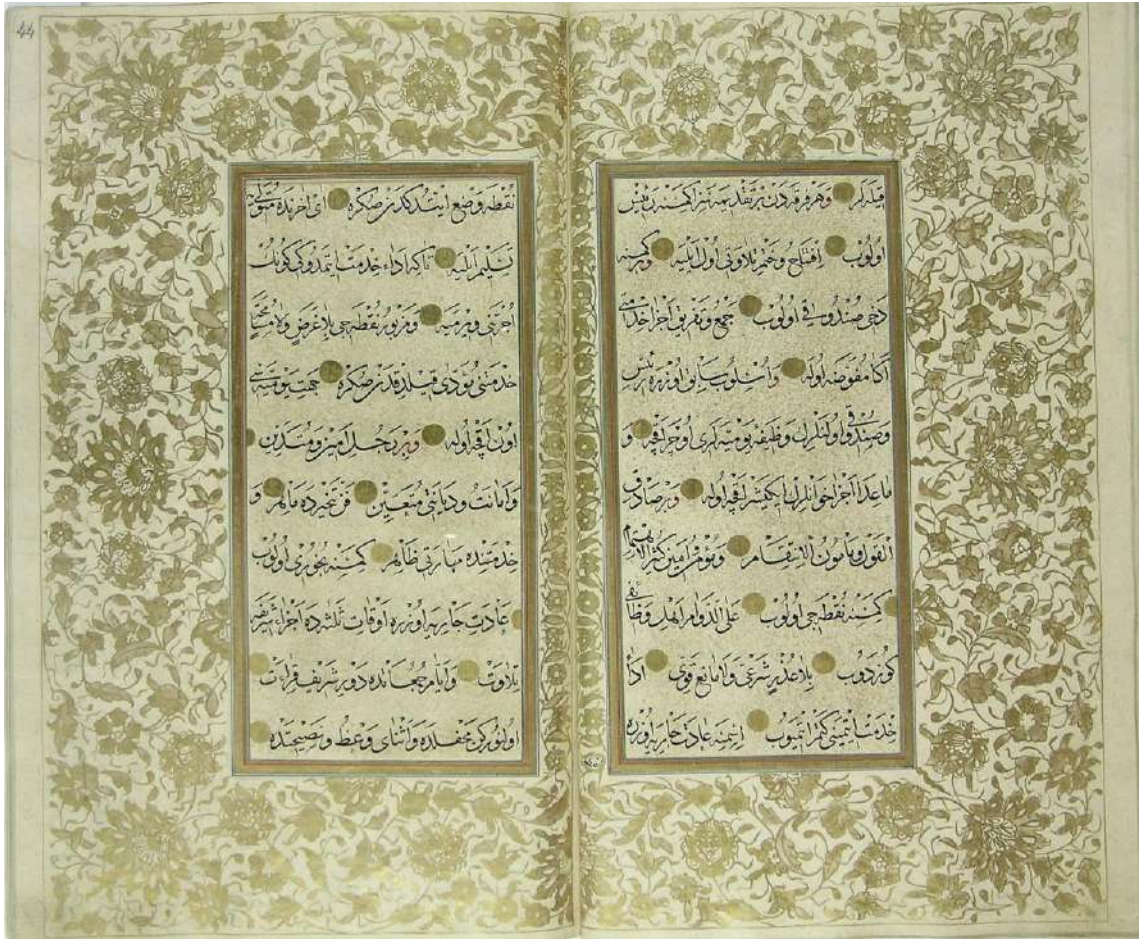 قيله لر وهر فرقه دن بر تقديمه سزا كمسنه رئيس
اولوب افتتاح وختم تلاوتى اول ايليه و بر كمسنه
دخى صندوقى اولوب جمع وتفريق اجزا خدمتى
اكا مفوضه اوله واسلوب سابق اوزره رئيس
وصندوقى اولنلرك وظيفه يوميه لرى اوچر اقچه و
ماعدا اجزا خوانلرك ايكيشر اقچه اوله و بر صادق
القول ومأمون الانتقام ومؤمن امين كثير الاهتمام
كمسنه نقطه جى اولوب على الدوام اهل وظائفى
كوزدوب بلا عذر شرعى ولا مانع قوى ادا
خدمت ايتمينى كتم ايتميوب اسمنه عادت جاريه اوزره
44
نقطه وضع ايتدكدنصكره اى اخرنده متولى يه
تسليم ايليه تاكه اداء خدمت ايتمدوكى كونك
اجرتنى ويرميه ومزبور نقطه جى بلا غرض ولا
خدمتنى مؤدى قيلدقدنصكره جهت يوميه سى
اون اقچه اوله و بر رجل اميز ومتدين
وامانت وديانتى متعين فن تبخيرده ماهر و
خدمتنده مهارتى ظاهر كمسنه بخورى اولوب
عادت جاريه اوزره اوقات ثلثه ده اجزاء شريفه
تلاوت وايام جمعاتده دوير شريف قراءت
اولنوركن محفلده واثناى وعظ ونصيحتده